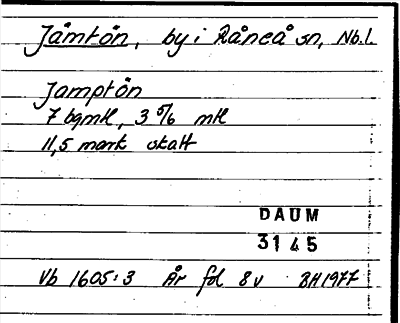 Jämtön, by i Råneå sn, Nb.l.
Jamptön
7 bgmtl, 3 5/6 mtl
11,5 mark skatt
DAUM
3145
Vb 1605:3 År fol 8v BH1977